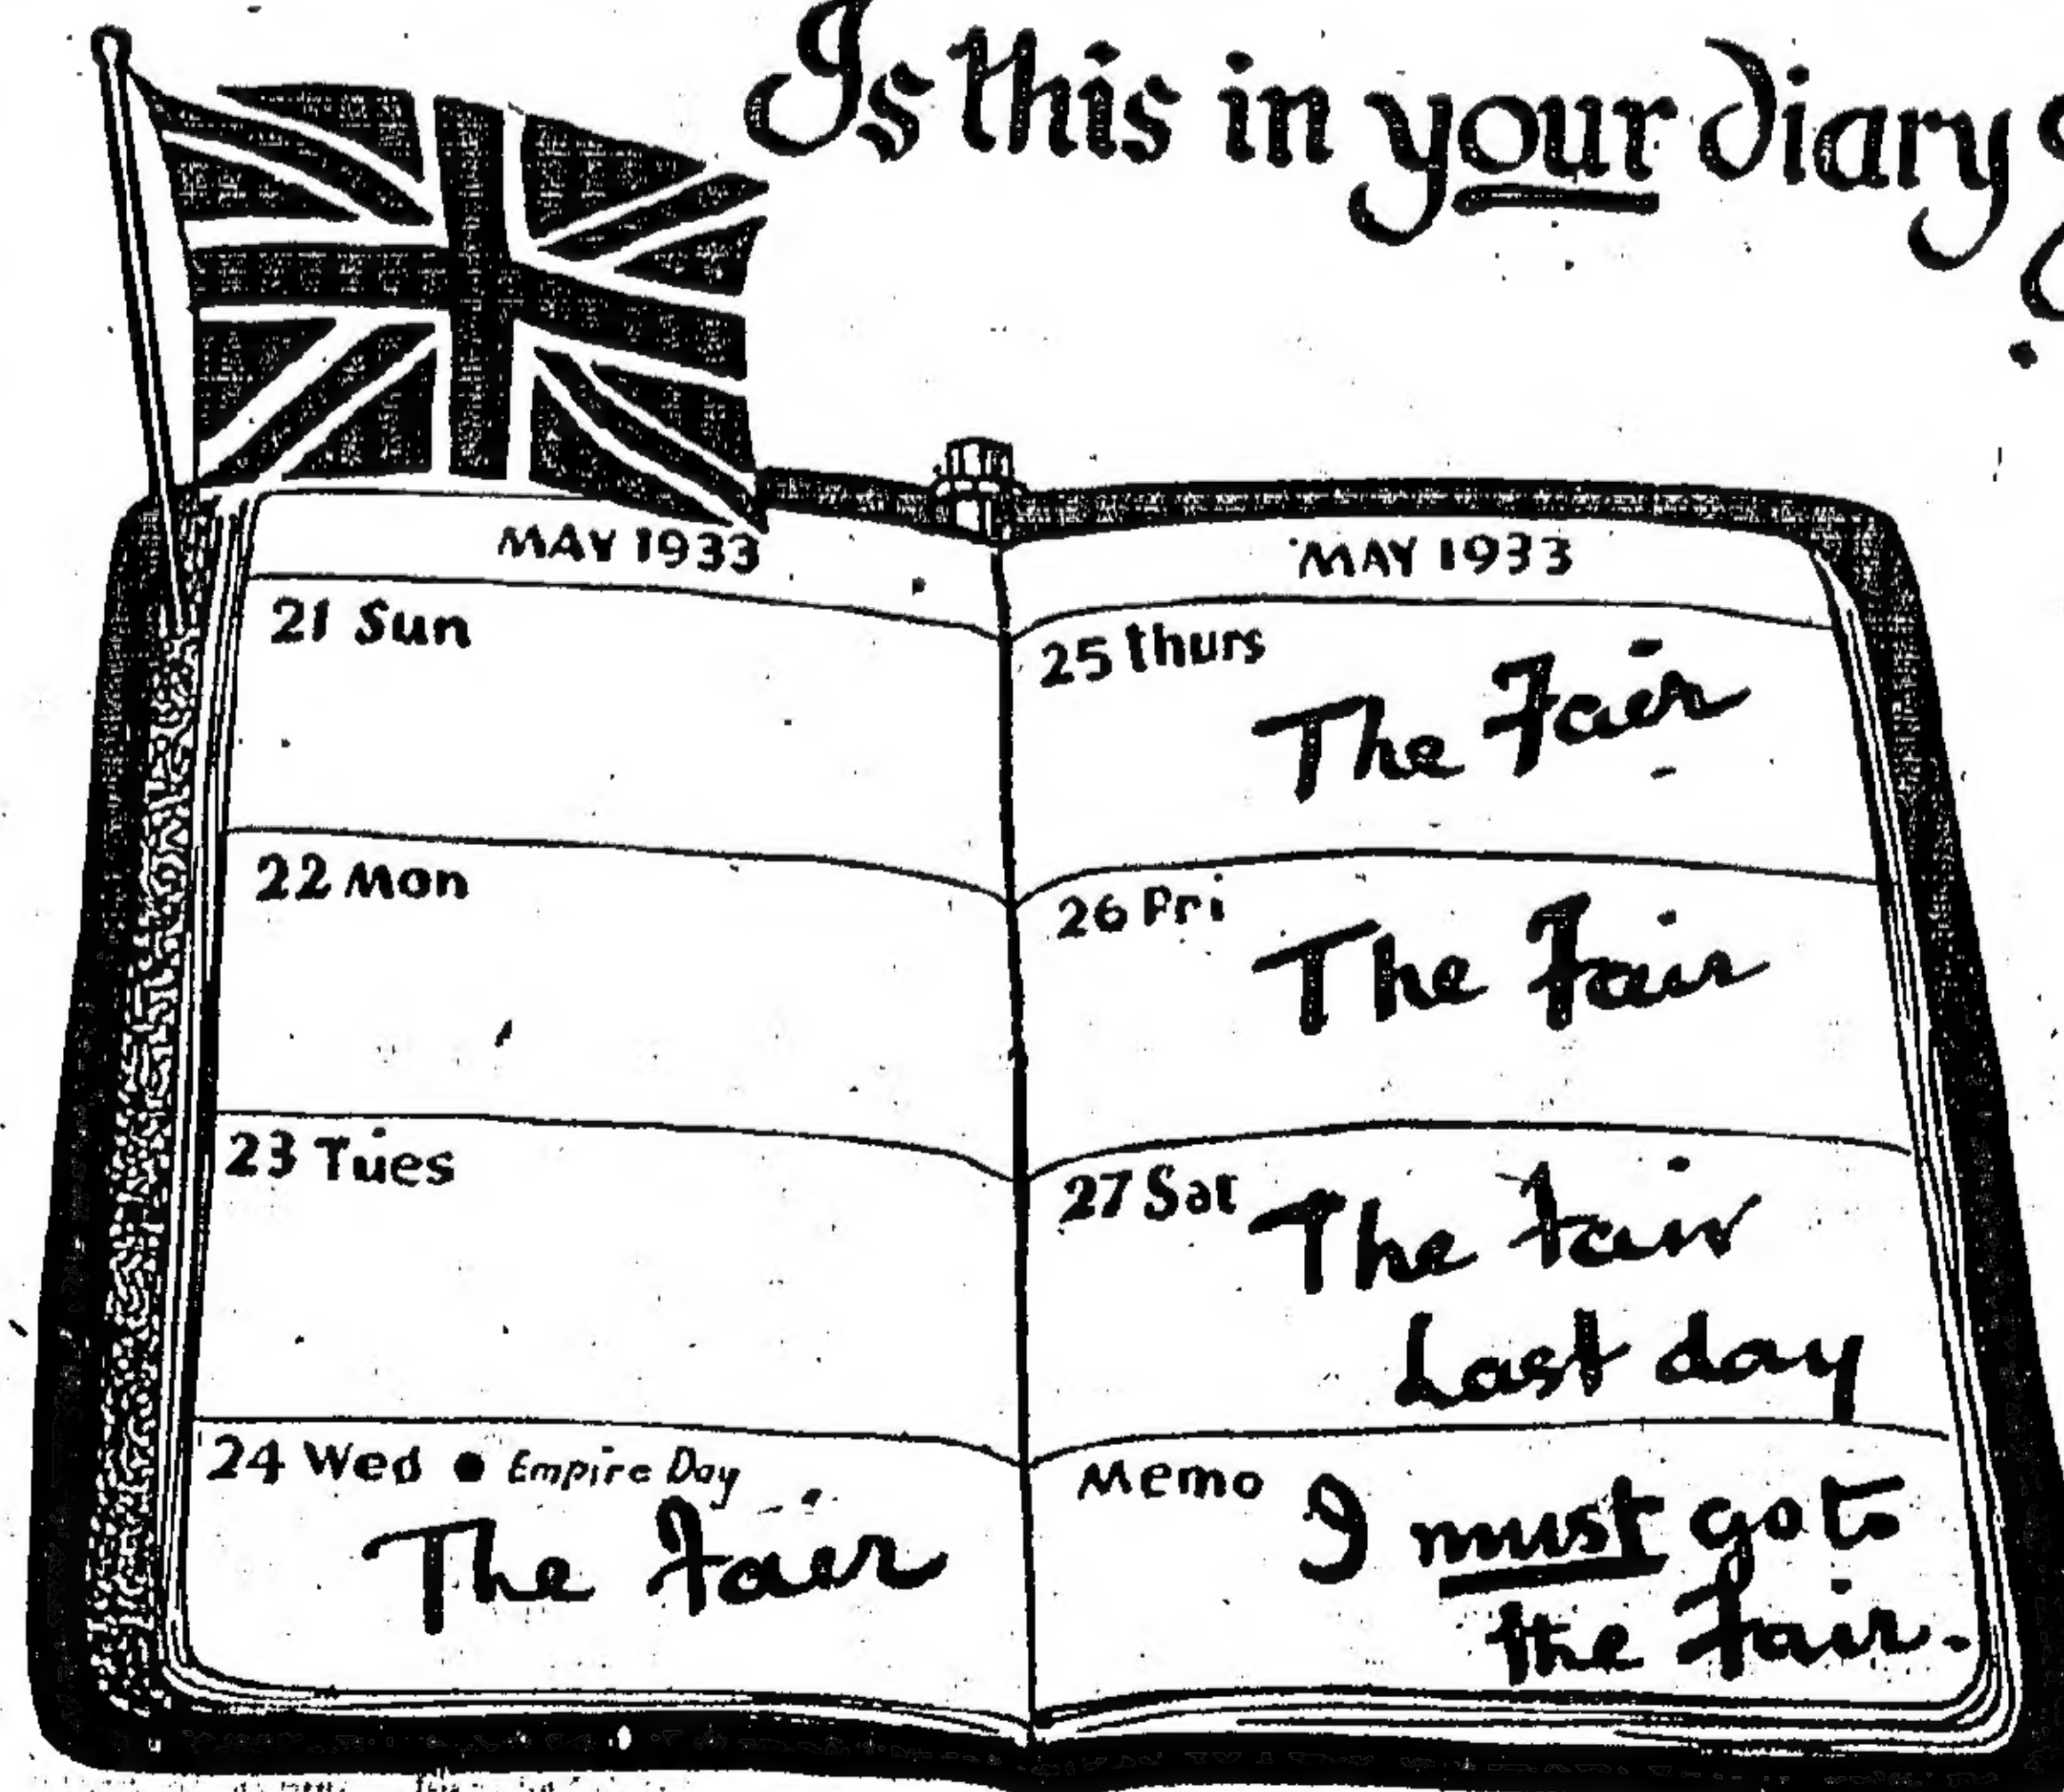 Is this in your diary?
MAY 1933
21 Sun
22 Mon
23 Tues
24 Wed • Empire Day
The Fair
MAY 1933
25 thurs
The Fair
26 Fri
The Fair
27 Sat
The Fair
Last day
Memo
I must go to
the Fair.